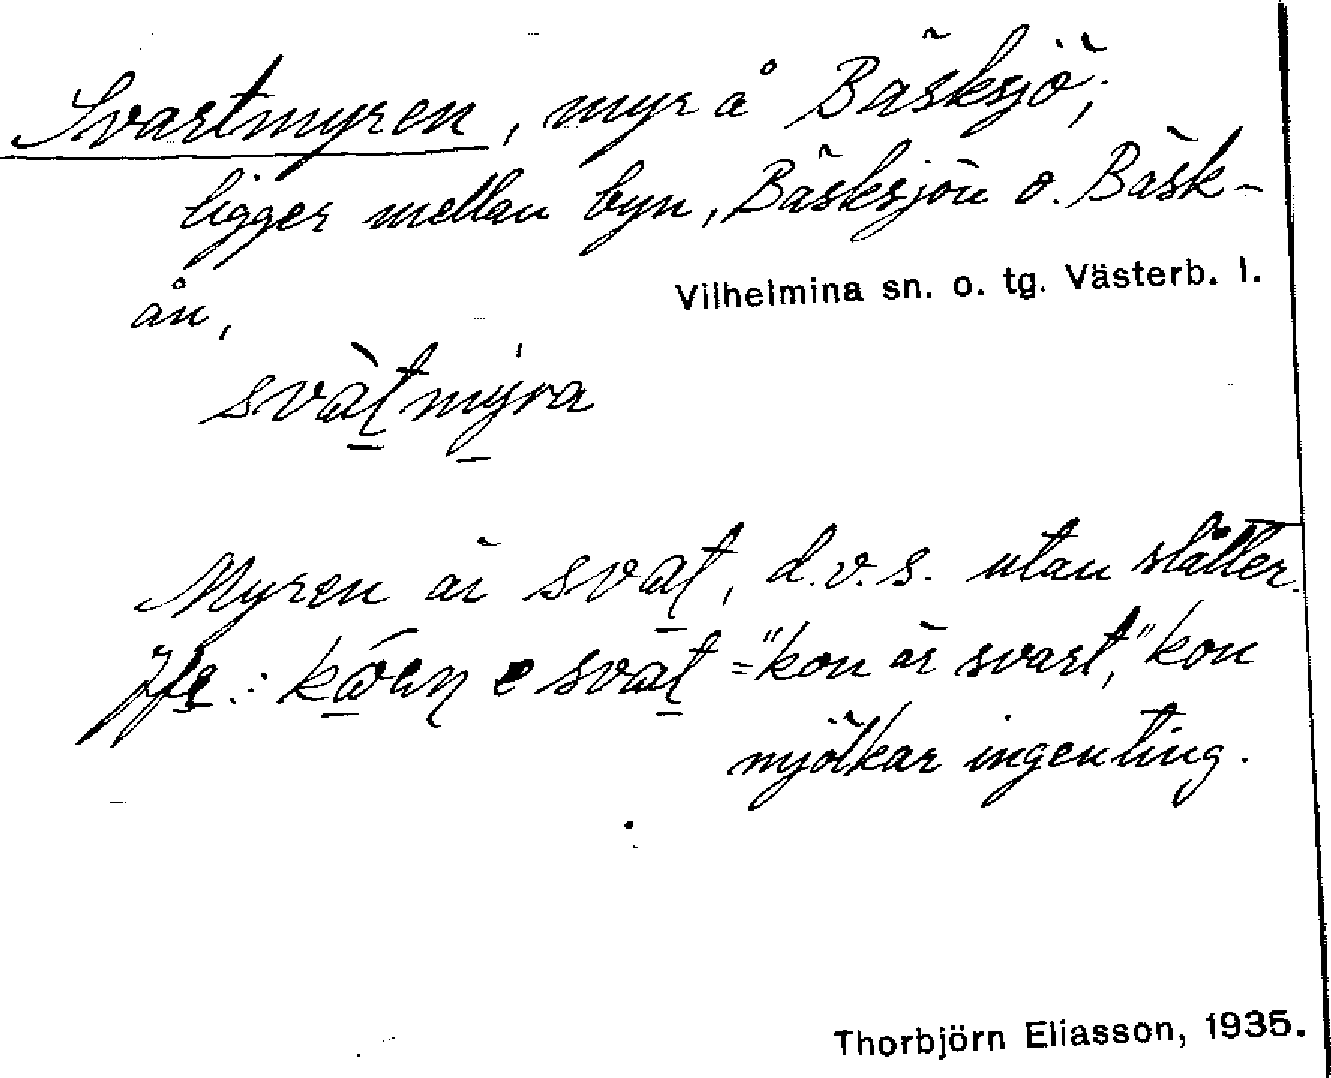 Svartmyren, myr å Bäsksjö;
ligger mellan byn, Bäsksjön o. Bäsk-
ån,
Vilhelmina sn. o. tg. Västerb. l.
svàt mýra
Myren är svat, d.v.s. utan slåtter.
Jfr.: e svat = "kon är svart," kon
mjölkar ingenting.
Thorbjörn Eliasson, 1935.